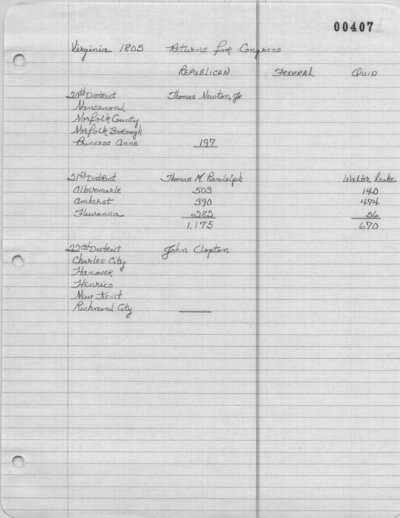 00407
Virginia 1805 Returns for Congress
REPUBLICAN FEDERAL QUID
20th District Thomas Newton, Jr.
Nansemond
Norfolk County
Norfolk Borough
Princess Anne 197
21st District Thomas M. Randolph Walter Leake
Albermarle 503 140
Amherst 390 474
Fluvanna 282 56
1,175 670
22nd District John Clopton
Charles City
Hanover
Henrico
New Kent
Richmond City